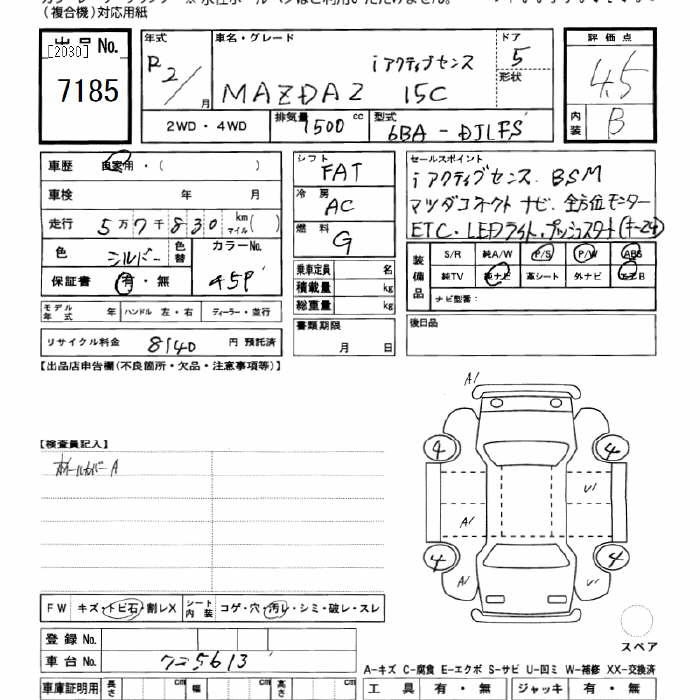 (複合機)対応用紙
出品No.
[2030]
7185
年式 R2/ 月
車名・グレード iアクティブセンス
MAZDA2 15C
ドア 5
形状
評価点 4.5
内装 B
2WD・4WD
排気量 1500 cc
型式 6BA-DJLFS
車歴 自家用・( )
車検 年 月
走行 5万7千830 km マイル( )
色 シルバー 色替 カラーNo. 45P
保証書 有・無
シフト FAT
冷房 AC
燃料 G
乗車定員 名
積載量 kg
総重量 kg
書類期限
月 日
セールスポイント
iアクティブセンス. BSM
マツダコネクト ナビ. 全方位モニター
ETC・LEDライト・プッシュスタート(キー2ケ)
装備品 S/R 純A/W P/S P/W ABS
純TV 純ナビ 革シート 外ナビ エアB
ナビ型番:
後日品
モデル年式 年 ハンドル 左・右 ディーラー・並行
リサイクル料金 8140 円 預託済
【出品店申告欄(不良箇所・欠品・注意事項等)】
【検査員記入】
ホイールカバーA
A1
4
4
U1
A1
4
4
A1
U1
FW キズ・トビ石・割レX シート内装 コゲ・穴・汚レ・シミ・破レ・スレ
登録No.
車台No. 725613
スペア
A-キズ C-腐食 E-エクボ S-サビ U-凹ミ W-補修 XX-交換済
車庫証明用 長さ cm 幅 cm 高さ cm
工具 有・無 ジャッキ 有・無